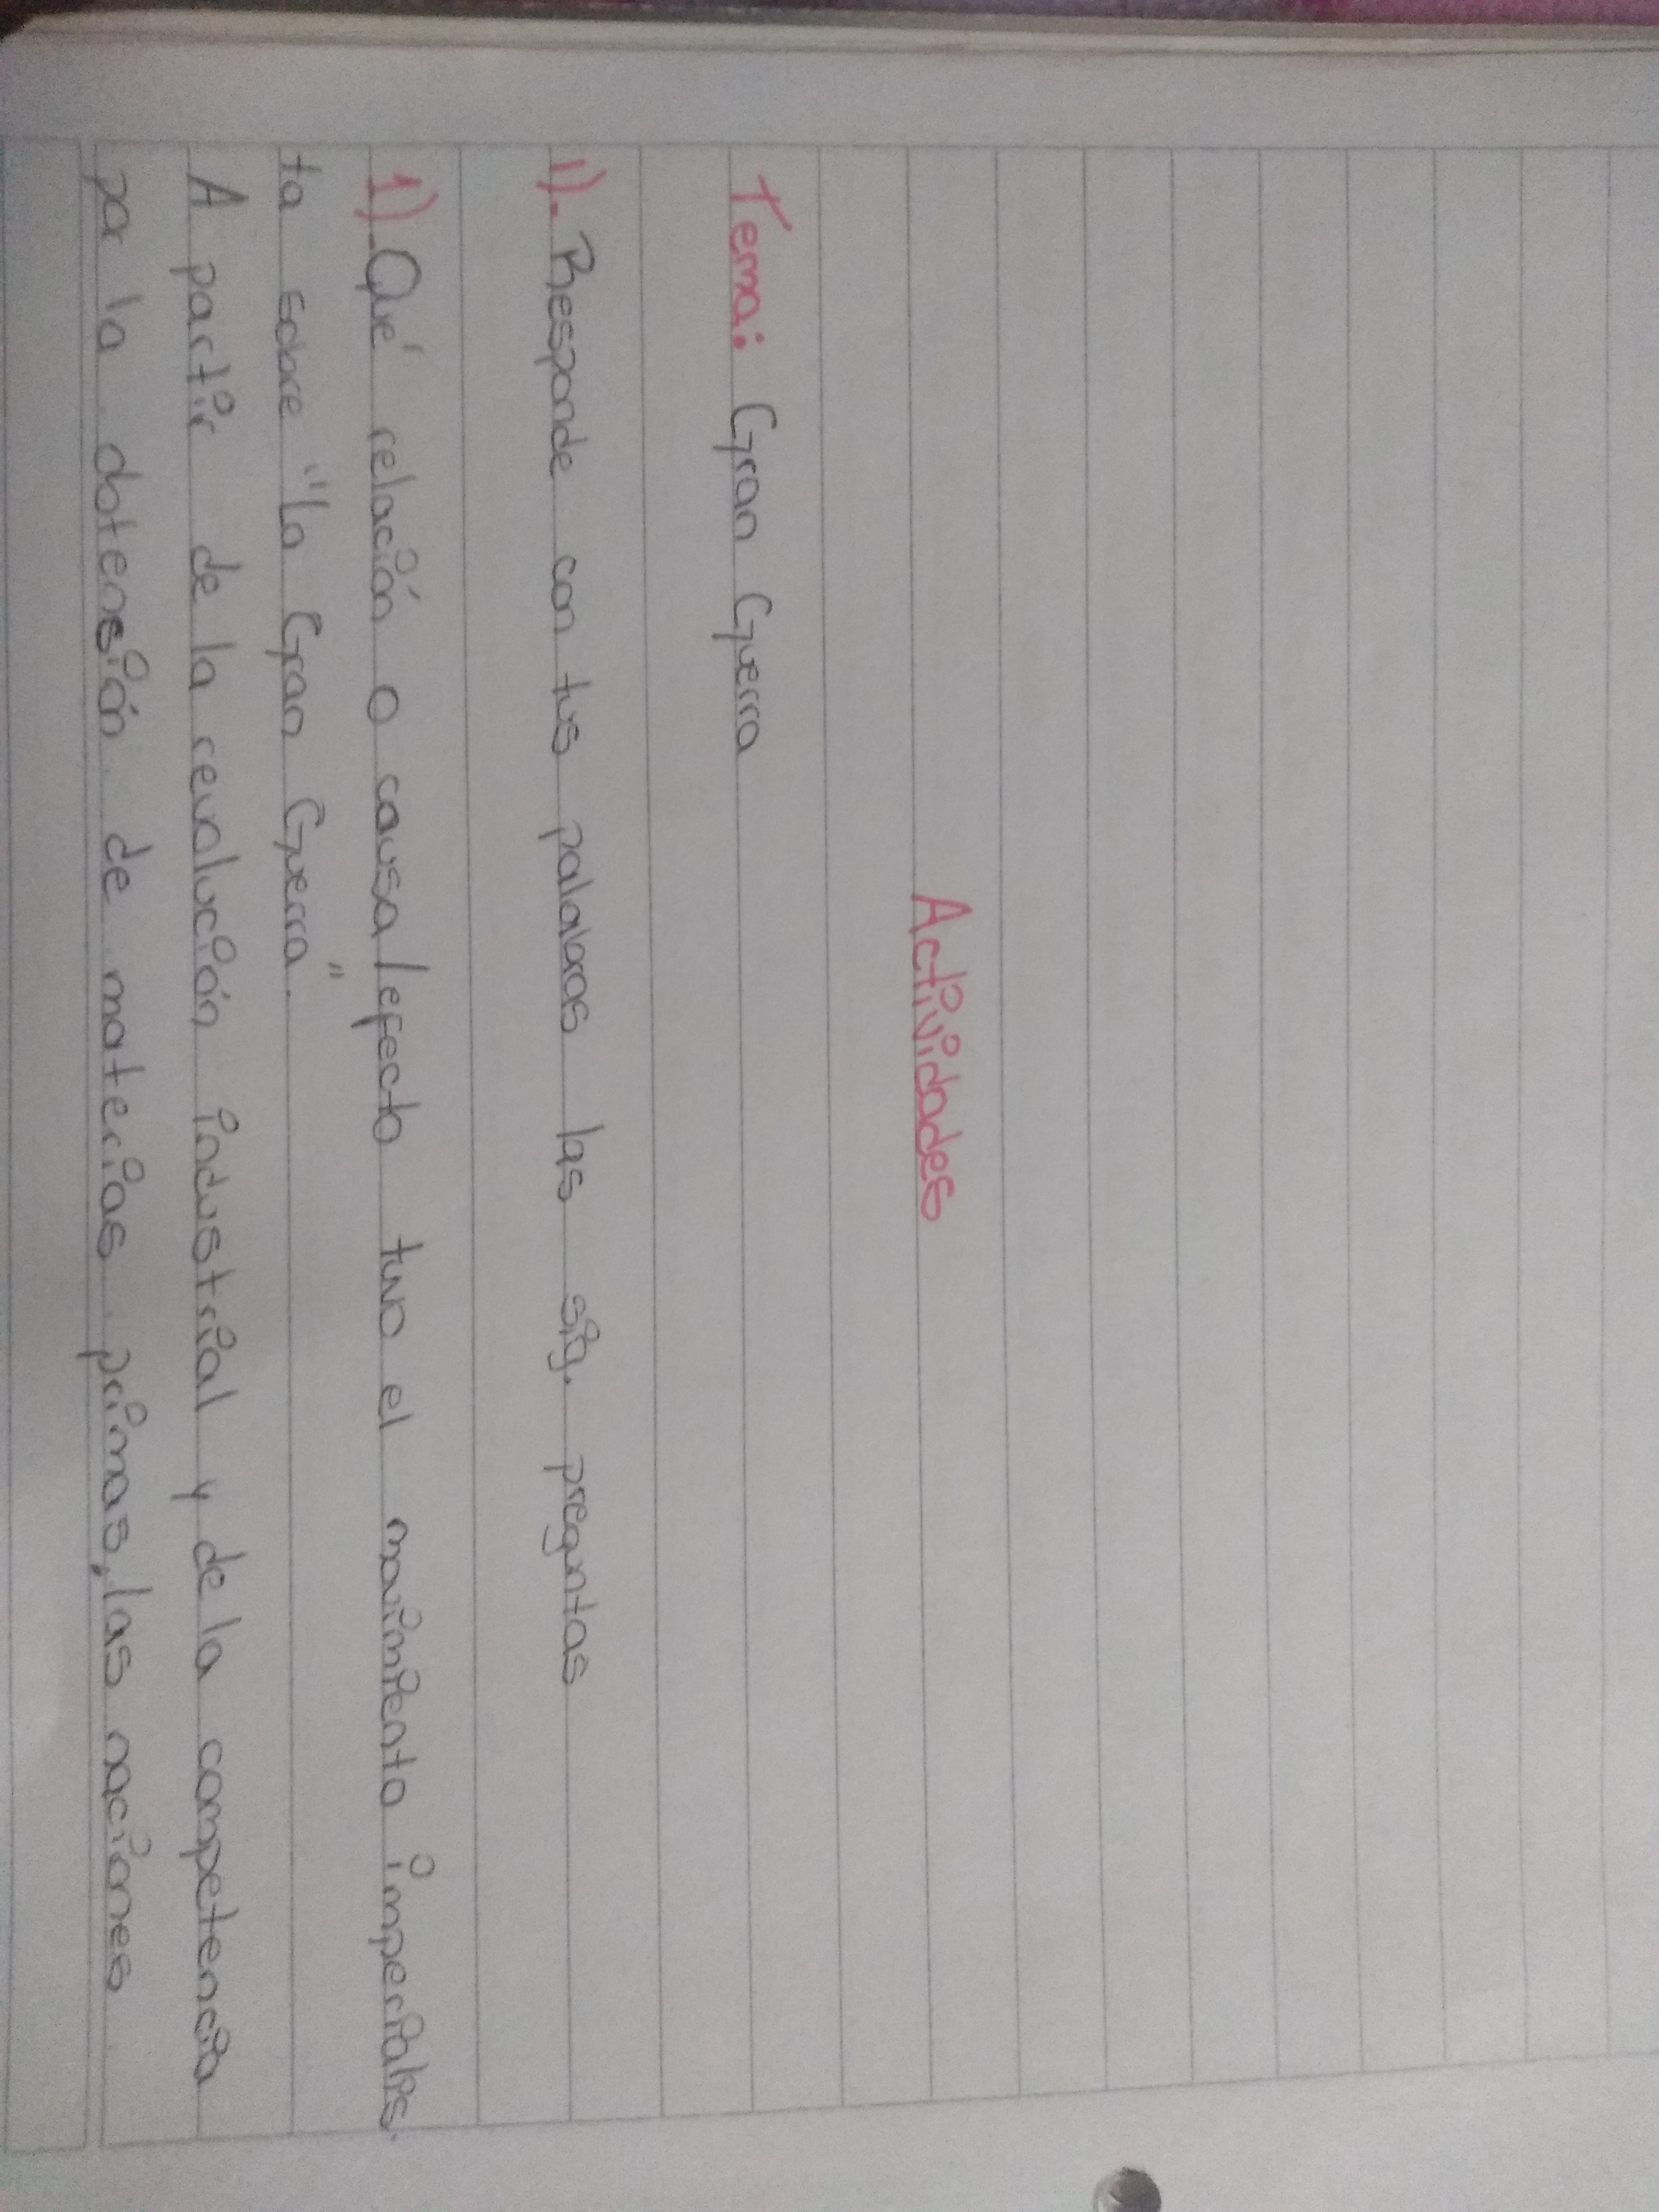 Actividades
Tema: Gran Guerra
1). Responde con tus palabras las sig. preguntas
1).Qué relación o causa/efecto tuvo el movimiento imperialis-
ta sobre "La Gran Guerra".
A partir de la revolución industrial y de la competencia
por la dotensión de materias primas, las naciones